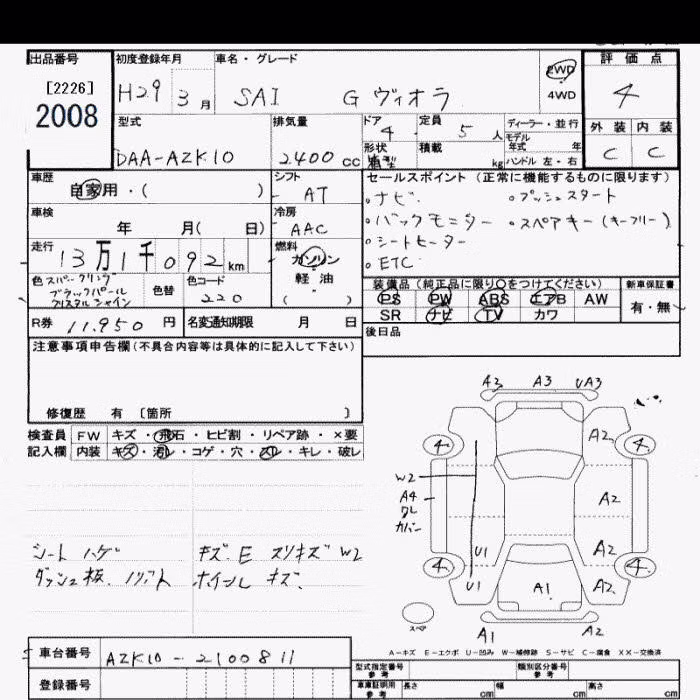 出品番号
[2226]
2008
初度登録年月
H29 3月
車名・グレード
SAI G ヴィオラ
2WD
4WD
評価点
4
型式
DAA-AZK10
排気量
2400 cc
ドア
4
形状
定員
5 人
積載
kg
ディーラー・並行
モデル
年式 年
ハンドル 左・右
外装 内装
C C
車歴
自家用・( )
シフト
AT
セールスポイント (正常に機能するものに限ります)
・ナビ ・プッシュスタート
・バックモニター ・スペアキー(キーフリー)
・シートヒーター
・ETC
車検
年 月( 日)
冷房
AAC
走行
13万1千092km
燃料
ガソリン
軽・油
( )
色 スパークリング
ブラックパール
クリスタルシャイン
色替
色コード
220
装備品 (純正品に限り〇をつけてください)
PS PW ABS エアB AW
SR ナビ TV カワ
新車保証書
有・無
R券 11.950 円
名変通知期限 月 日
後日品
注意事項申告欄(不具合内容等は具体的に記入して下さい)
修復歴 有 〔箇所 〕
検査員
記入欄
FW キズ・飛石・ヒビ割・リペア跡・×要
内装 キズ・汚れ・コゲ・穴・スレ・キレ・破レ
シート ハゲ
ダッシュ板、ノリアト
キズ、E スリキズ W2
ホイール キズ、
A3 A3 UA3
4 A2 4
W2
A4
クレ
カバー
A2
U1 A2
4 4
U1 A1 A2
スペア
A1 A2
A-キズ E-エクボ U-凹み W-補修跡 S-サビ C-腐食 XX-交換済
車台番号
AZK10-2100811
登録番号
型式指定番号
参考
類別区分番号
参考
車庫証明用
参考
長さ cm 幅 cm 高さ cm